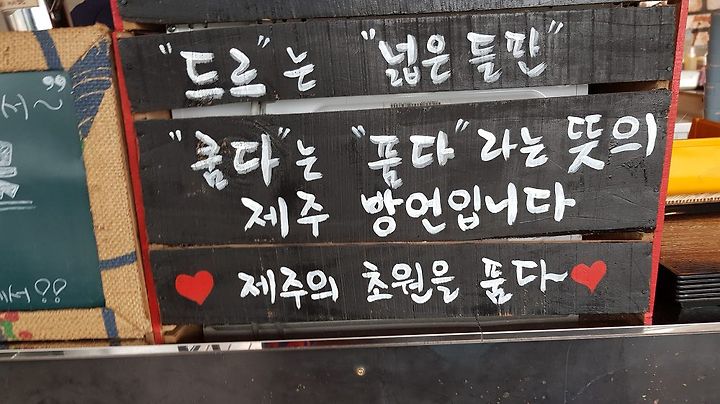 "드르"는 "넓은 들판"
"쿰다"는 "품다"라는 뜻의
제주 방언입니다
♥ 제주의 초원을 품다 ♥
서~"
서??